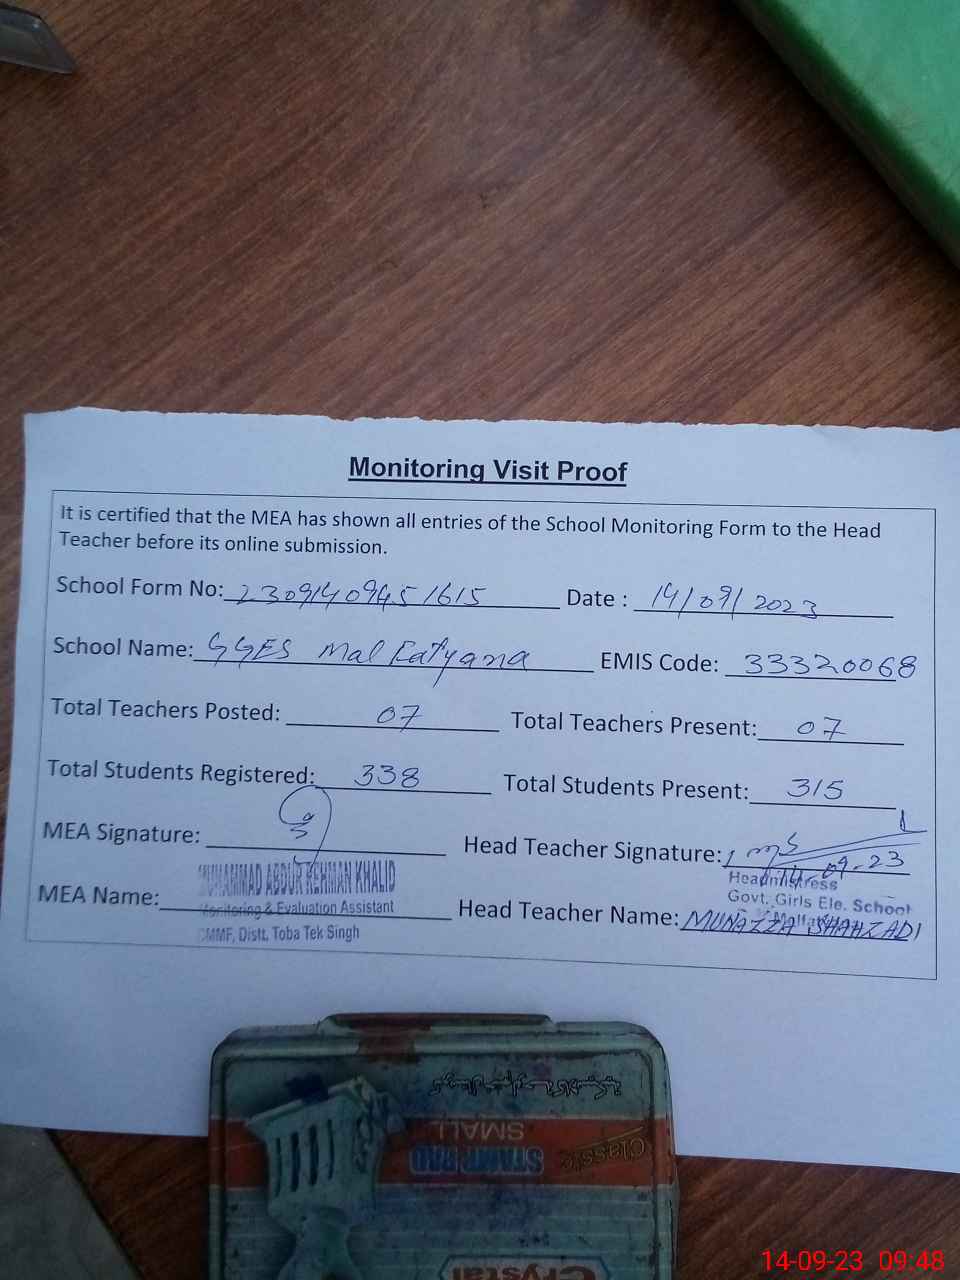 Monitoring Visit Proof
It is certified that the MEA has shown all entries of the School Monitoring Form to the Head
Teacher before its online submission.
School Form No: 23091409451615 Date : 14/09/2023
School Name: GGES Mal Fatyana EMIS Code: 33320068
Total Teachers Posted: 07 Total Teachers Present: 07
Total Students Registered: 338 Total Students Present: 315
MEA Signature: Head Teacher Signature:
14-09-23
MUHAMMAD ABDUR REHMAN KHALID
Monitoring & Evaluation Assistant
CMMF, Distt. Toba Tek Singh
Headmistress
Govt. Girls Ele. School
MEA Name: Head Teacher Name: MUNAZZA SHAHZADI
SMALL
STAMP PAD
Classic
Crystal
14-09-23 09:48